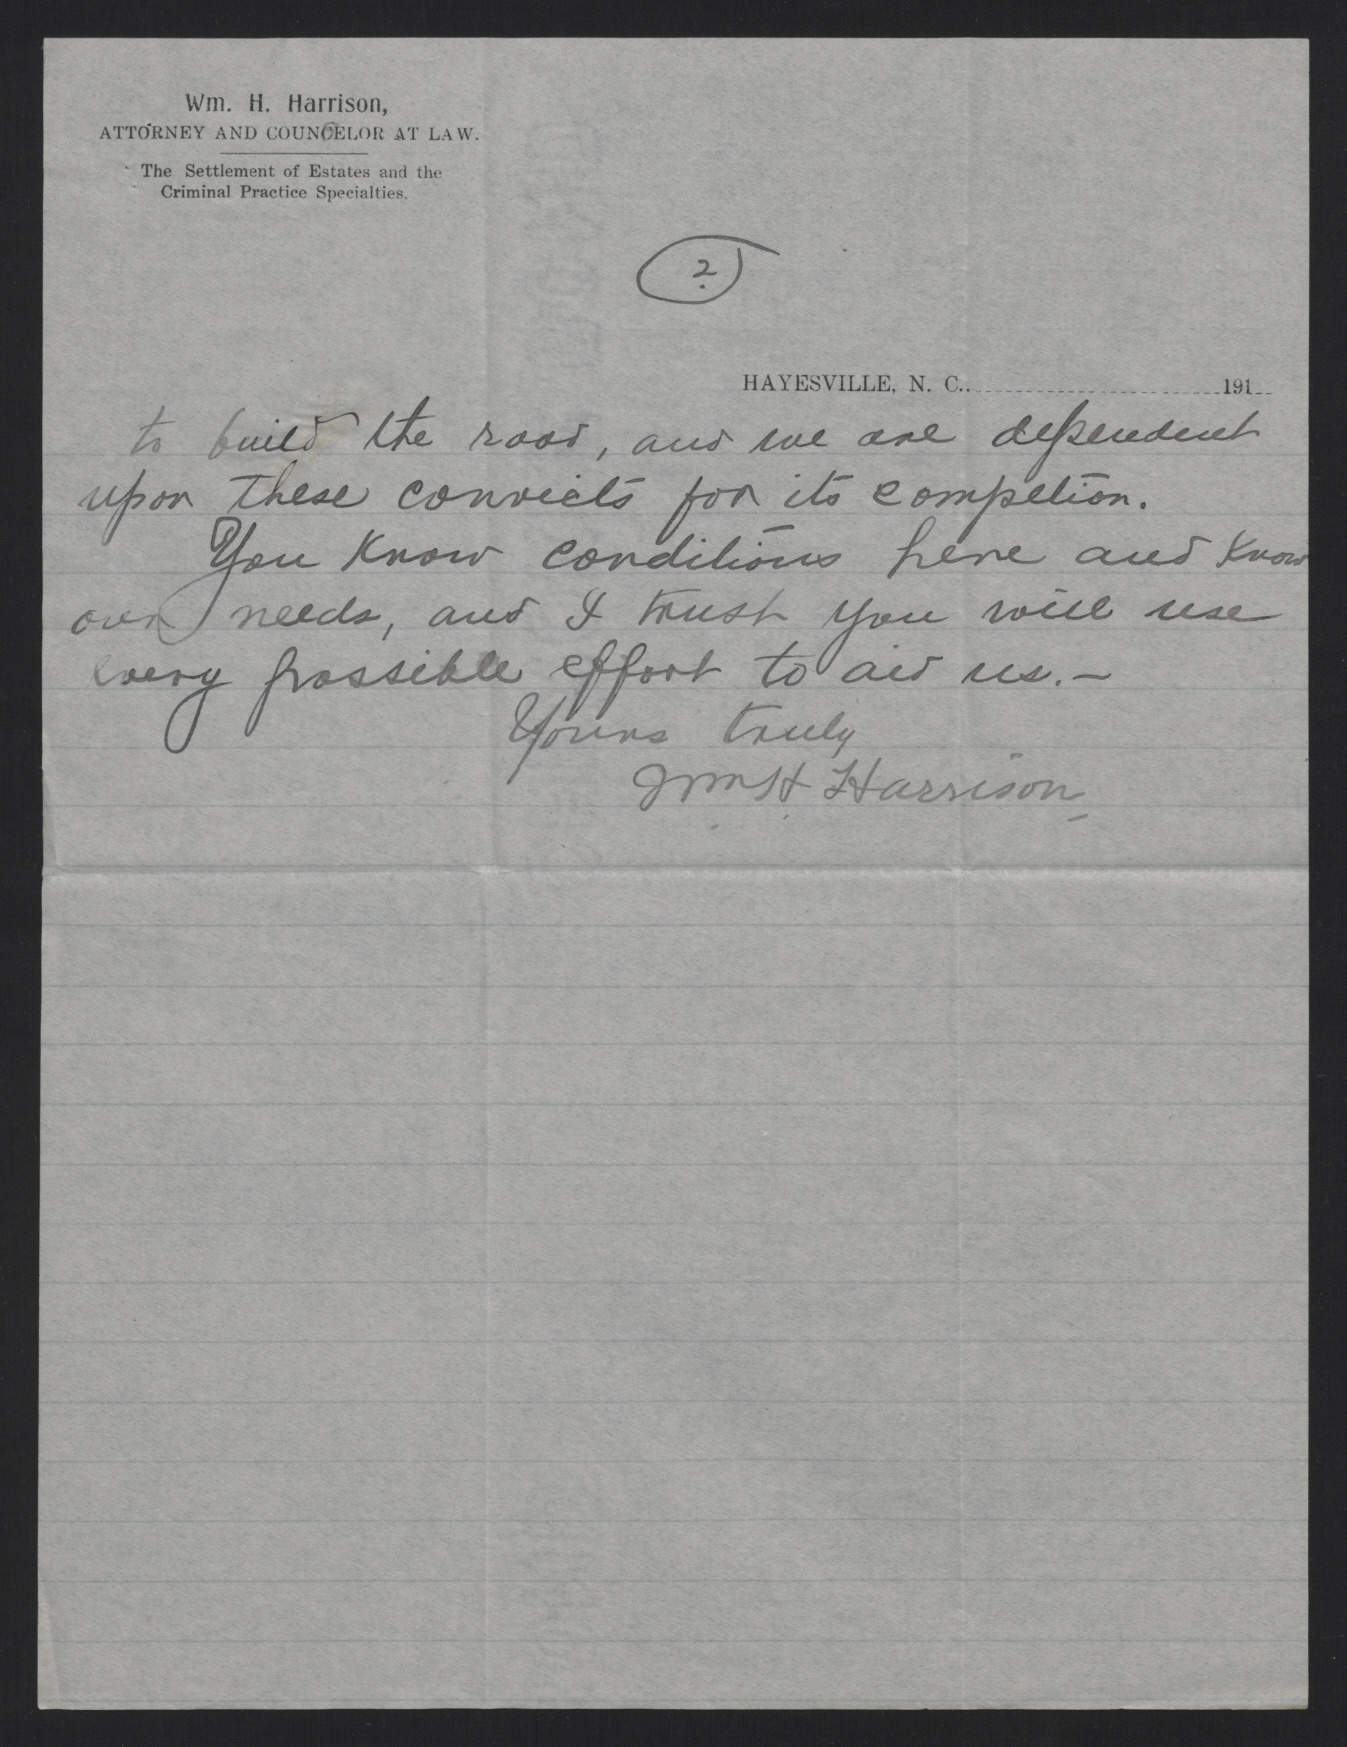 Wm. H. Harrison,
ATTORNEY AND COUNCELOR AT LAW.
The Settlement of Estates and the
Criminal Practice Specialties.
2
HAYESVILLE, N. C. 191
to build the road, and we are dependent
upon these convicts for its competion.
You know conditions here and know
our needs, and I trust you will use
every possible effort to aid us.—
Yours truly
Wm H Harrison